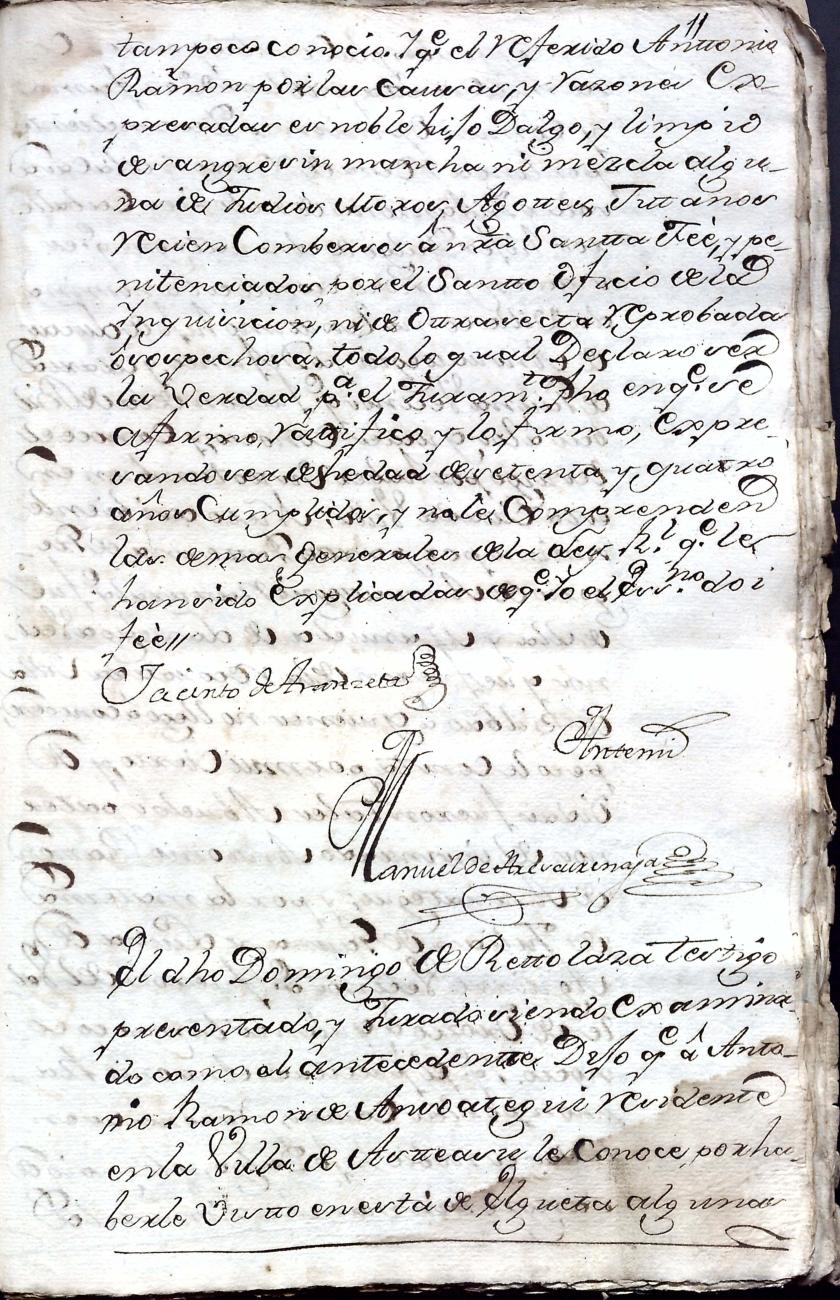 11
tampoco conocio. Y q.e el Referido Anttonio
Ramon por las causas, y Razones Ex-
presadas es noble hijo Dalgo, y limpio
de sangre sin mancha ni mezcla algu-
na de Judios Moros, Agottes, Jittanos
Recien Combersos â nrâ Santta Feè, y pe-
nitenciados por el Santto Oficio de la
Inquisicion, ni de Ottra secta Reprobada
ò sospechosa, todo lo qual Declaro ser
la Verdad p.a el Juram.to dho en q.e se
afirmo, Ratifico y lo firmo, Expre-
sando ser de hedad de setenta y quatro
años Cumplidos, y no le Comprenden
las demas Generales de la Ley R.l q.e le
han sido Explicadas de q.e Yo el Ess.no doi
feè//
Jacinto de Aranzeta
Antemi
Manuel de
El dho Domingo de Rettolaza testigo
presentado, y Jurado siendo Examina-
do como al antecedentte, Dijo q.e â Anto-
nio Ramon de Ansoategui Residente
en la Villa de Aspeasu le Conoce, por ha-
berle Vistto en esta de Elgueta algunas